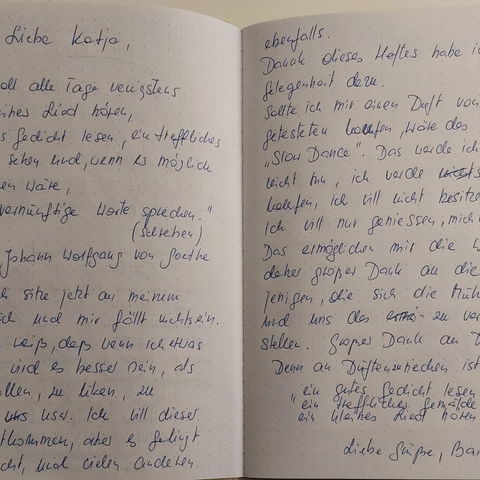 Liebe Katja,
soll alle Tage wenigstens
kleines Lied hören,
Gedicht lesen, ein treffliches
sehen und, wenn es möglich
wäre,
vernünftige Worte sprechen."
(schreiben)
Johann Wolfgang von Goethe
sitze jetzt an meinem
und mir fällt nichts ein.
weiß, daß wenn ich etwas
wird es besser sein, als
zu liken, zu
usw. Ich will dieser
aber es gelingt
und vielen anderen
ebenfalls.
Dank dieses Heftes habe ic
Gelegenheit dazu.
Sollte ich mir einen Duft von
getesteten kaufen, wäre das
„Slow Dance". Das werde ich
nicht tun, ich werde nichts
kaufen, ich will nicht besitze
Ich will nur geniessen, mich
Das ermöglichen mir die
daher großer Dank an die
jenigen, die sich die Müh
und uns das zu ver
stellen. Großer Dank an D
Denn an Düften riechen ist
"ein gutes Gedicht lesen
ein treffliches Gemälde
ein kleines Lied hören
Liebe Grüße, Bar